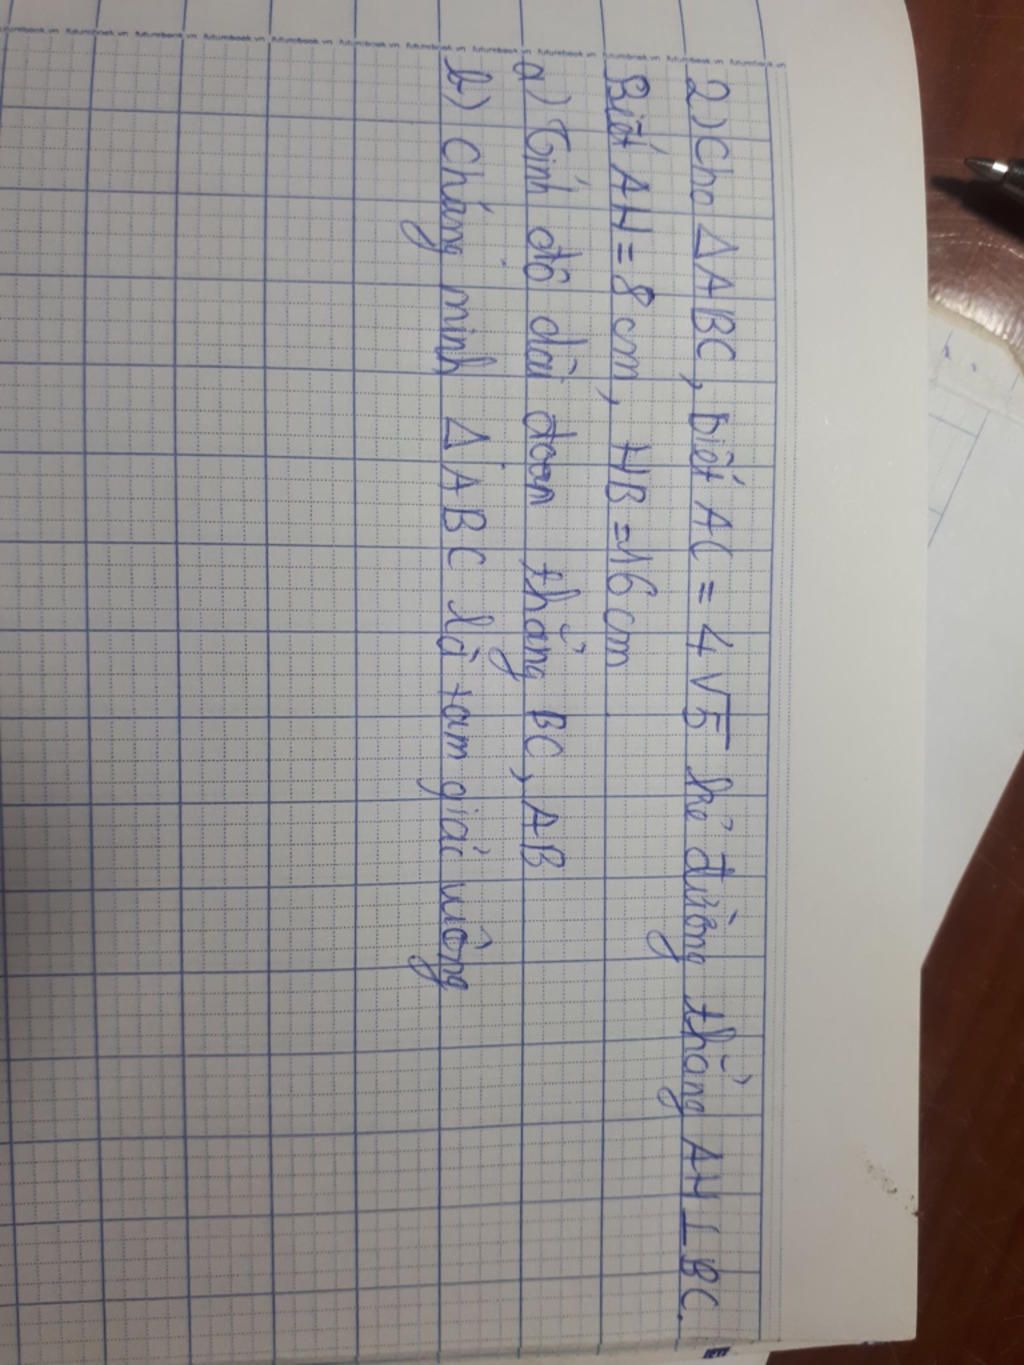 2) Cho Δ ABC, biết AC = 4√5 kẻ đường thẳng AH ⊥ BC.
Biết AH = 8 cm, HB = 16 cm
a) Tính độ dài đoạn thẳng BC, AB
b) Chứng minh Δ ABC là tam giác vuông